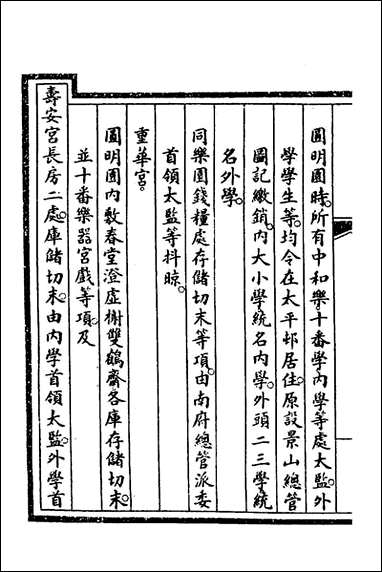 圓明園時。所有中和樂。十番學內學等處太監。外
學學生等。均令在太平邨居住。原設景山總管
圖記繳銷。內大小學統名內學。外頭二三學統
名外學。
同樂園錢糧處存儲切末等項。由南府總管派委
首領太監等抖晾。
重華宮。
圓明園內敷春堂澄虛榭雙鶴齋各庫存儲切末。
並十番樂器宮戲等項。及
壽安宮長房二處。庫儲切末。由內學首領太監。外學首